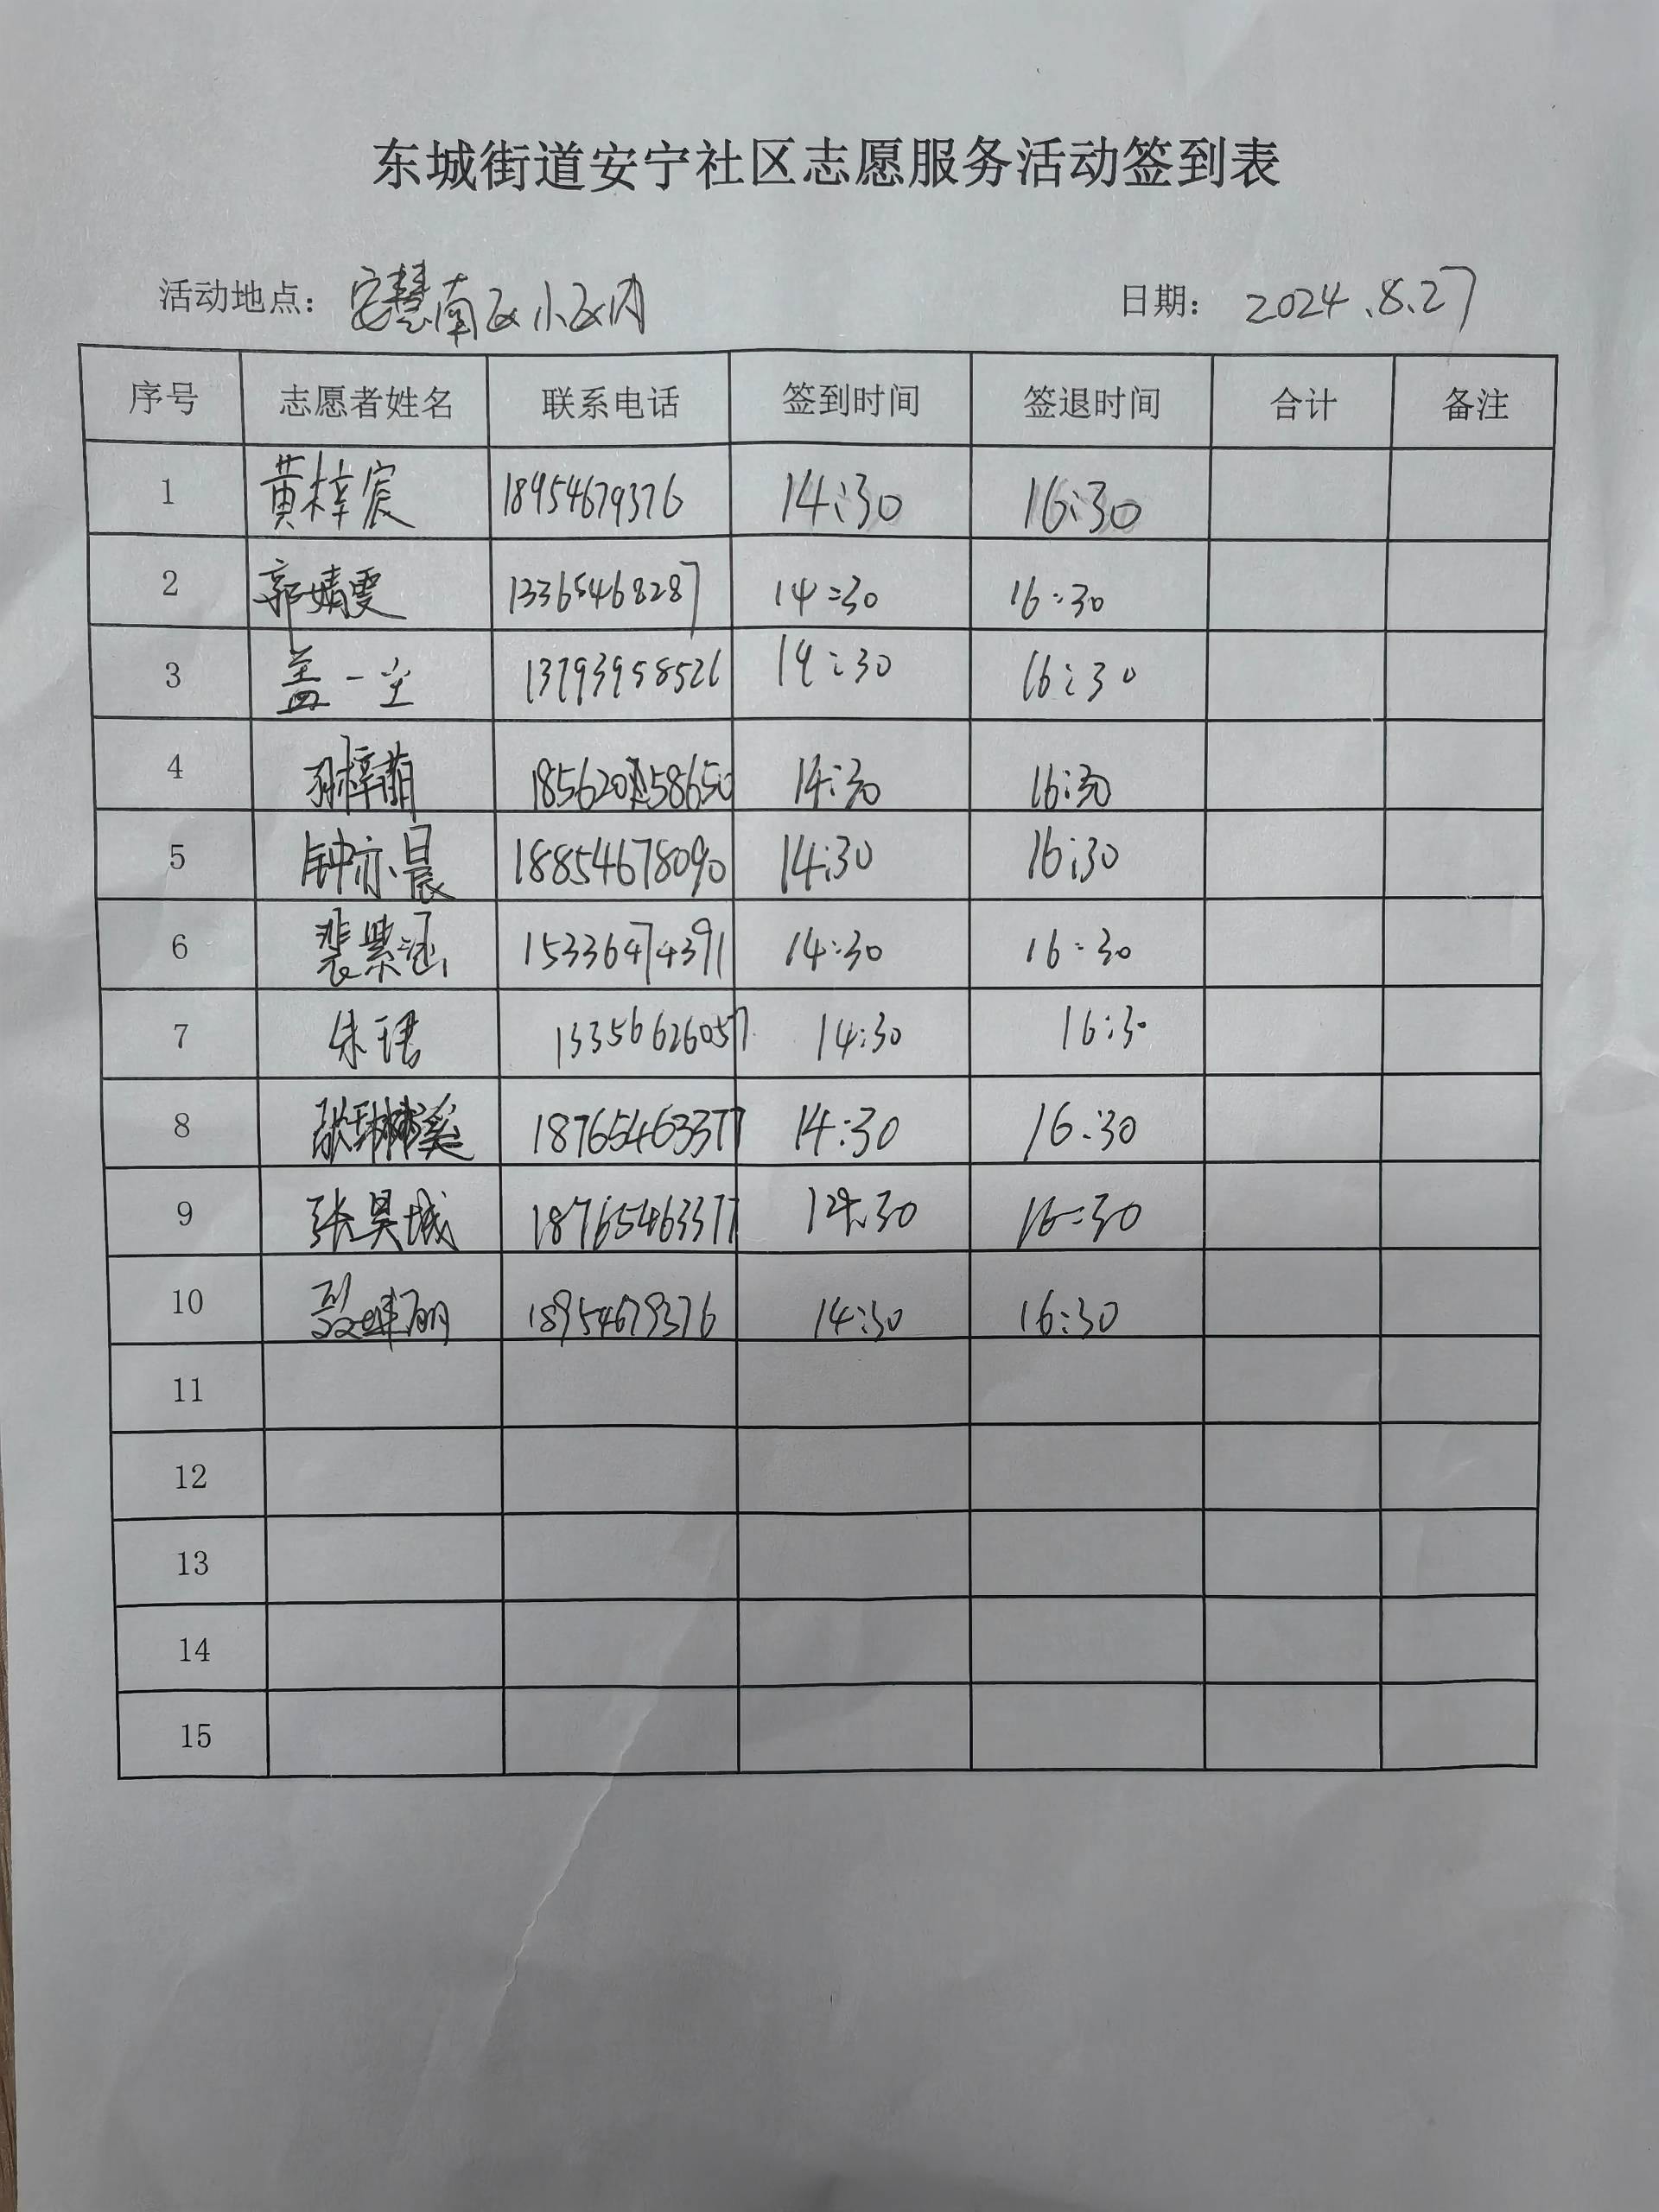 东城街道安宁社区志愿服务活动签到表
活动地点：安慧南区小区内 日期：2024.8.27
序号 志愿者姓名 联系电话 签到时间 签退时间 合计 备注
1 黄梓宸 18954679376 14:30 16:30
2 郭婧雯 13365468287 14:30 16:30
3 盖一 13793958526 14:30 16:30
4 孙梓萌 14:30 16:30
5 钟亦晨 18854678090 14:30 16:30
6 裴紫涵 15336474391 14:30 16:30
7 朱珺 13356626057 14:30 16:30
8 张琳溪 18765463377 14:30 16:30
9 张昊城 18765463377 14:30 16:30
10 18954679376 14:30 16:30
11
12
13
14
15